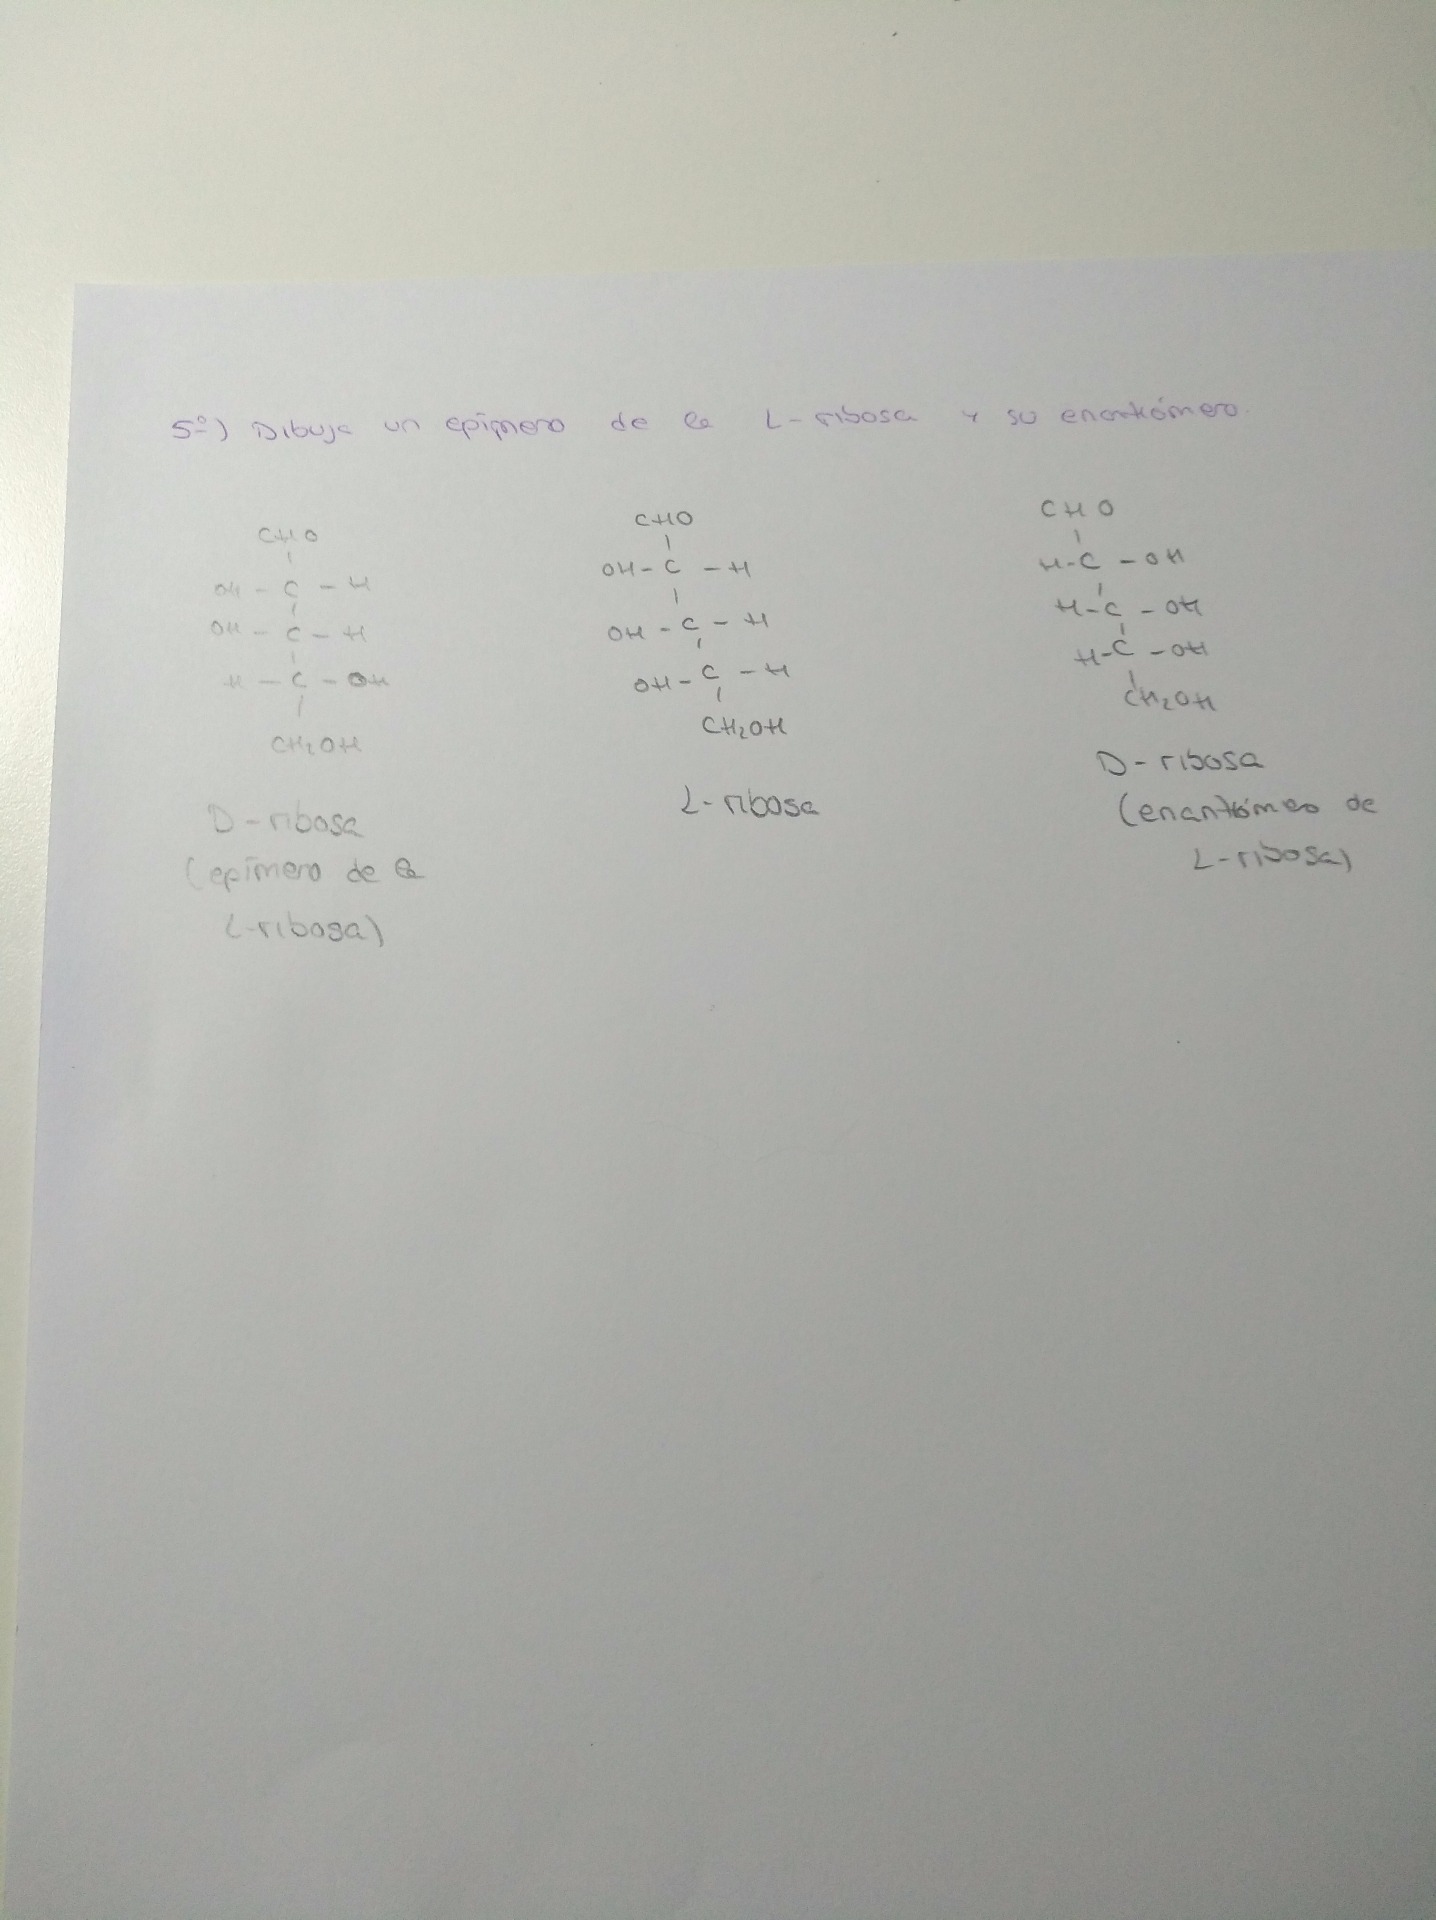 5º) Dibuja un epímero de la L-ribosa y su enantiómero.
CHO
OH - C - H
OH - C - H
H - C - OH
CH₂OH
D-ribosa
(epímero de la
L-ribosa)
CHO
OH - C - H
OH - C - H
OH - C - H
CH₂OH
L-ribosa
CHO
H - C - OH
H - C - OH
H - C - OH
CH₂OH
D-ribosa
(enantiómero de
L-ribosa)